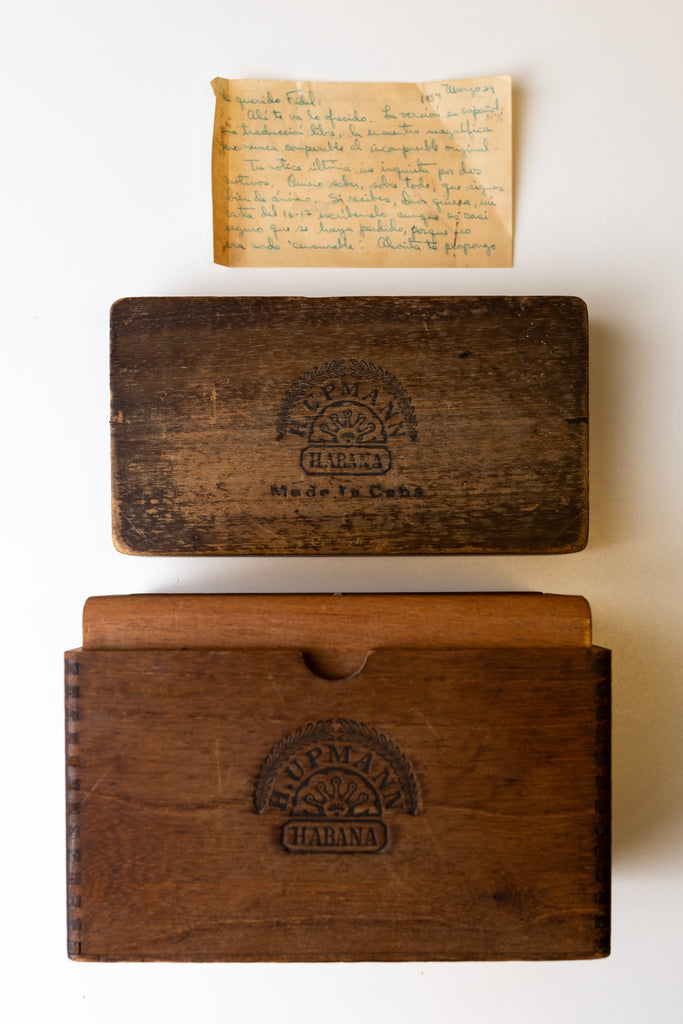 querido Fidel: 1954 Marzo 24
Ahí te va lo ofrecido. La versión en español,
una traducción libre, la encuentro magnífica
comparable al incomparable original.
Tu notica última me inquieta por dos
motivos. Quiero saber, sobre todo, que sigues
bien de ánimo. Si recibes, Dios quiera, mi
carta del 16-17 escríbemelo, aunque es casi
seguro que se haya perdido, porque no
era nada "censurable". Ahorita te propongo
H. UPMANN
HABANA
Made in Cuba
H. UPMANN
HABANA